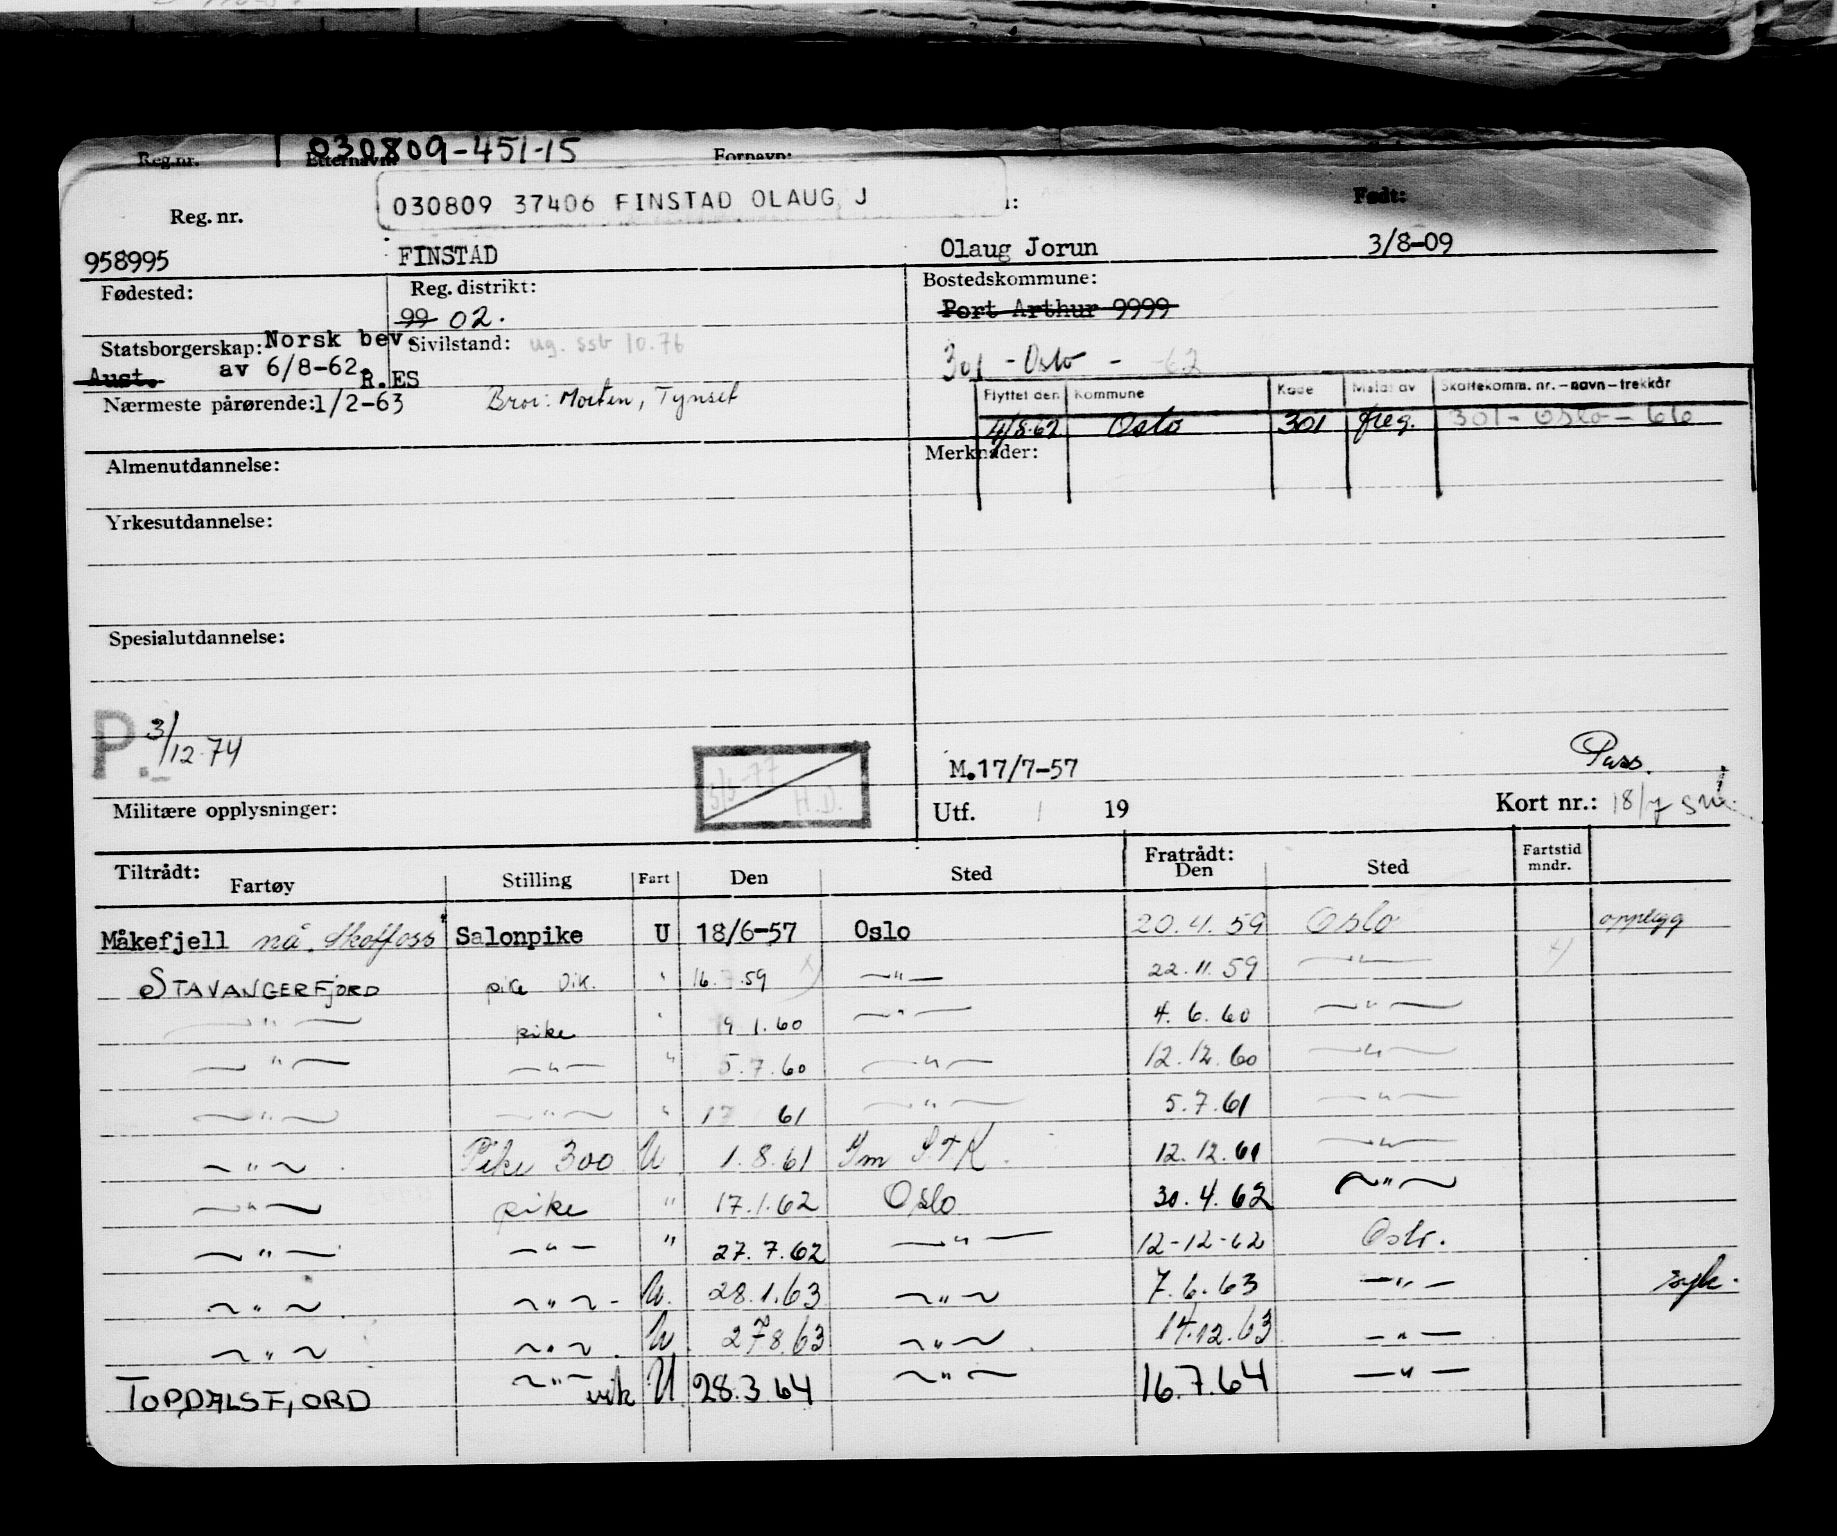 Reg.nr. 030809-451-15 Etternavn Fornavn:
030809 37406 FINSTAD OLAUG, J
Reg. nr. Født:
958995 FINSTAD Olaug Jorun 3/8-09
Fødested: Reg. distrikt: Bostedskommune:
99 02. Port Arthur 9999
Statsborgerskap: Norsk bev. Sivilstand: ug. ssb 10.76
Aust. av 6/8-62. R.ES 301 - Oslo - -62
Nærmeste pårørende: 1/2-63 Bror: Morten, Tynset
Flyttet den Kommune Kode Melst av Skattekomm. nr. - navn - trekkår
4/8-62 Oslo 301 freg. 301 - Oslo - 66
Almenutdannelse: Merknader:
Yrkesutdannelse:
Spesialutdannelse:
P. 3/12.74
5/5-77 H.D.
M.17/7-57 Pass.
Militære opplysninger: Utf. 19 Kort nr.: 18/7
Tiltrådt: Fratrådt:
Fartøy Stilling Fart Den Sted Den Sted Fartstid mndr.
Måkefjell nå. Skotfoss Salonpike U 18/6-57 Oslo 20.4.59 Oslo opplegg
STAVANGERFJORD pike vik. " 16. .59 — " — 22.11.59 — " —
— " — pike " 19 1.60 — " — 4.6.60 — " —
— " — — " — " 5.7.60 — " — 12.12.60 — " —
— " — — " — " 17 61 — " — 5.7.61 — " —
— " — Pike 300 U 1.8.61 12.12.61 — " —
— " — pike " 17.1.62 Oslo 30.4.62 — " —
— " — — " — " 27.7.62 — " — 12-12-62 Oslo.
— " — — " — U. 28.1.63 — " — 7.6.63 — " — syk.
— " — — " — U. 27.8.63 — " — 14.12.63 — " —
TOPDALSFJORD — " — vik U 28.3.64 — " — 16.7.64 — " —